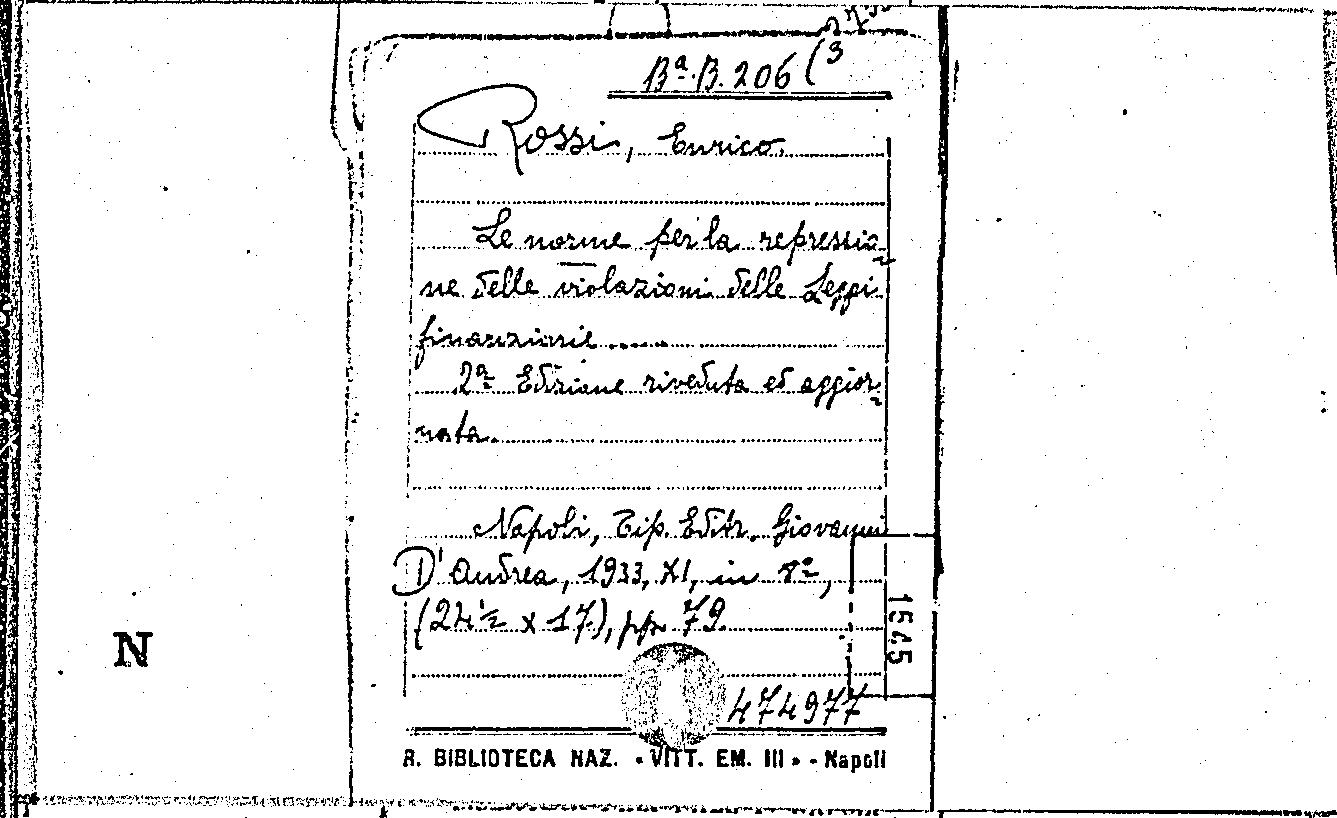 Bª. B. 206 (3
Rossi, Enrico.
Le norme per la repressio=
ne delle violazioni delle Leggi
finanziarie ......
2ª Edizione riveduta ed aggior=
nata.
Napoli, Tip. Editr. Giovanni
D'Andrea, 1933, XI, in 8º,
(24½ x 17), pp. 79.
1545
N
474977
R. BIBLIOTECA NAZ. « VITT. EM. III » - Napoli